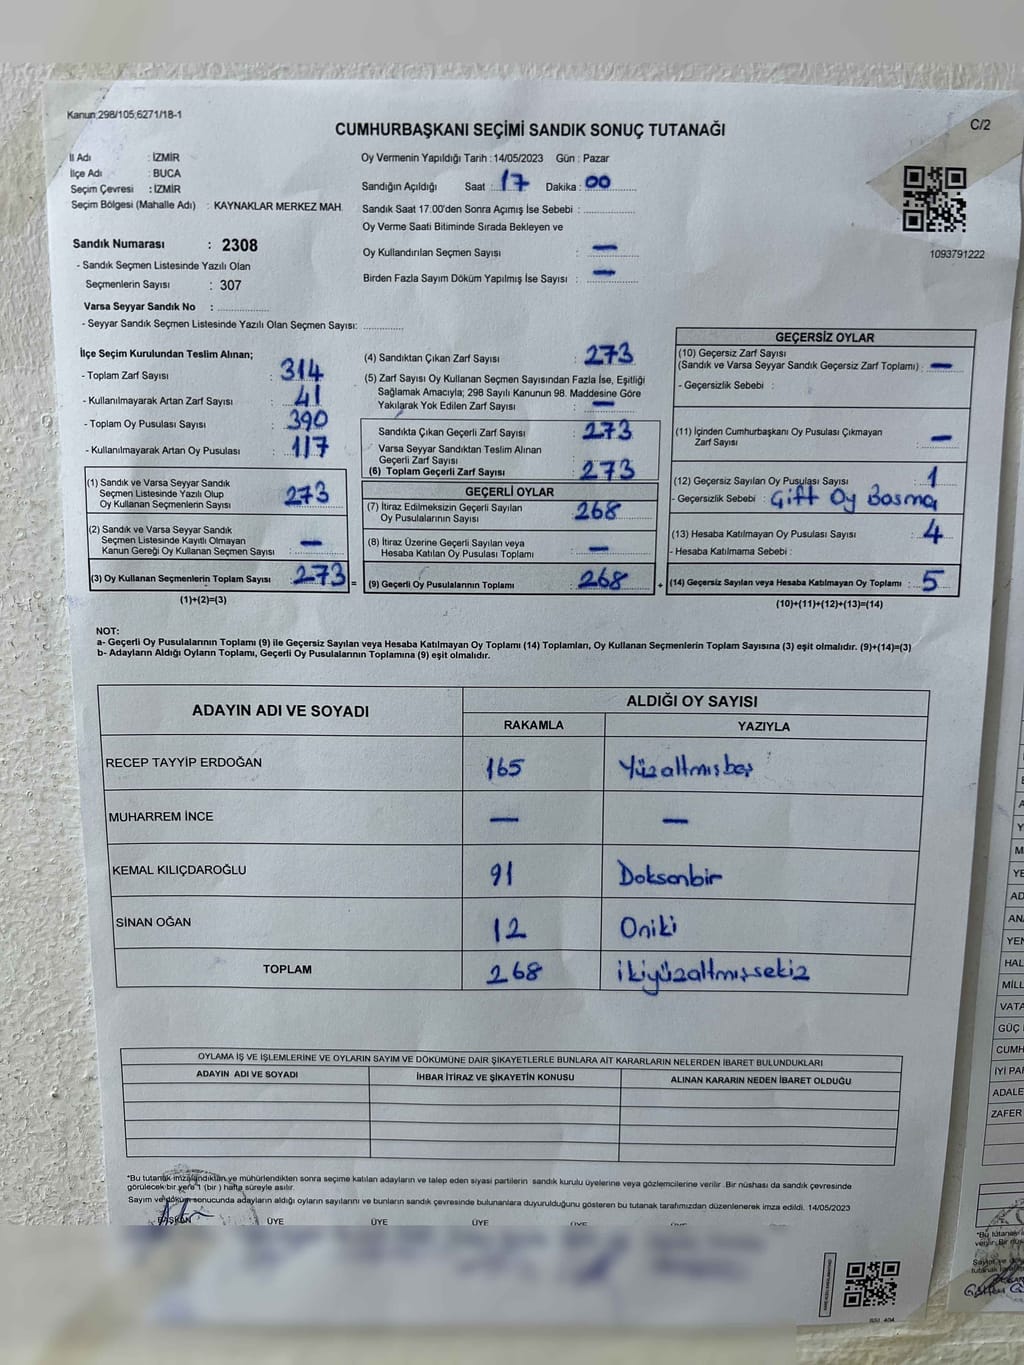 Kanun;298/105;6271/18-1
C/2
CUMHURBAŞKANI SEÇİMİ SANDIK SONUÇ TUTANAĞI
İl Adı : İZMİR
İlçe Adı : BUCA
Seçim Çevresi : İZMİR
Seçim Bölgesi (Mahalle Adı) : KAYNAKLAR MERKEZ MAH.
Sandık Numarası : 2308
- Sandık Seçmen Listesinde Yazılı Olan
Seçmenlerin Sayısı : 307
Varsa Seyyar Sandık No :
- Seyyar Sandık Seçmen Listesinde Yazılı Olan Seçmen Sayısı:
Oy Vermenin Yapıldığı Tarih : 14/05/2023 Gün : Pazar
Sandığın Açıldığı Saat : 17 Dakika : 00
Sandık Saat 17:00'den Sonra Açımış İse Sebebi :
Oy Verme Saati Bitiminde Sırada Bekleyen ve
Oy Kullandırılan Seçmen Sayısı : —
Birden Fazla Sayım Döküm Yapılmış İse Sayısı : —
1093791222
İlçe Seçim Kurulundan Teslim Alınan;
- Toplam Zarf Sayısı : 314
- Kullanılmayarak Artan Zarf Sayısı : 41
- Toplam Oy Pusulası Sayısı : 390
- Kullanılmayarak Artan Oy Pusulası : 117
(1) Sandık ve Varsa Seyyar Sandık
Seçmen Listesinde Yazılı Olup
Oy Kullanan Seçmenlerin Sayısı : 273
(2) Sandık ve Varsa Seyyar Sandık
Seçmen Listesinde Kayıtlı Olmayan
Kanun Gereği Oy Kullanan Seçmen Sayısı : —
(3) Oy Kullanan Seçmenlerin Toplam Sayısı : 273 =
(1)+(2)=(3)
(4) Sandıktan Çıkan Zarf Sayısı : 273
(5) Zarf Sayısı Oy Kullanan Seçmen Sayısından Fazla İse, Eşitliği
Sağlamak Amacıyla; 298 Sayılı Kanunun 98. Maddesine Göre
Yakılarak Yok Edilen Zarf Sayısı : —
Sandıkta Çıkan Geçerli Zarf Sayısı : 273
Varsa Seyyar Sandıktan Teslim Alınan
Geçerli Zarf Sayısı :
(6) Toplam Geçerli Zarf Sayısı : 273
GEÇERLİ OYLAR
(7) İtiraz Edilmeksizin Geçerli Sayılan
Oy Pusulalarının Sayısı : 268
(8) İtiraz Üzerine Geçerli Sayılan veya
Hesaba Katılan Oy Pusulası Toplamı : —
(9) Geçerli Oy Pusulalarının Toplamı : 268 +
GEÇERSİZ OYLAR
(10) Geçersiz Zarf Sayısı
(Sandık ve Varsa Seyyar Sandık Geçersiz Zarf Toplamı) : —
- Geçersizlik Sebebi :
(11) İçinden Cumhurbaşkanı Oy Pusulası Çıkmayan
Zarf Sayısı : —
(12) Geçersiz Sayılan Oy Pusulası Sayısı : 1
- Geçersizlik Sebebi : Çift Oy Basma
(13) Hesaba Katılmayan Oy Pusulası Sayısı : 4
- Hesaba Katılmama Sebebi :
(14) Geçersiz Sayılan veya Hesaba Katılmayan Oy Toplamı : 5
(10)+(11)+(12)+(13)=(14)
NOT:
a- Geçerli Oy Pusulalarının Toplamı (9) ile Geçersiz Sayılan veya Hesaba Katılmayan Oy Toplamı (14) Toplamları, Oy Kullanan Seçmenlerin Toplam Sayısına (3) eşit olmalıdır. (9)+(14)=(3)
b- Adayların Aldığı Oyların Toplamı, Geçerli Oy Pusulalarının Toplamına (9) eşit olmalıdır.
ADAYIN ADI VE SOYADI ALDIĞI OY SAYISI
RAKAMLA YAZIYLA
RECEP TAYYİP ERDOĞAN 165 Yüzaltmışbeş
MUHARREM İNCE — —
KEMAL KILIÇDAROĞLU 91 Doksanbir
SİNAN OĞAN 12 Oniki
TOPLAM 268 ikiyüzaltmışsekiz
OYLAMA İŞ VE İŞLEMLERİNE VE OYLARIN SAYIM VE DÖKÜMÜNE DAİR ŞİKAYETLERLE BUNLARA AİT KARARLARIN NELERDEN İBARET BULUNDUKLARI
ADAYIN ADI VE SOYADI İHBAR İTİRAZ VE ŞİKAYETİN KONUSU ALINAN KARARIN NEDEN İBARET OLDUĞU
*Bu tutanak imzalandıktan ve mühürlendikten sonra seçime katılan adayların ve talep eden siyasi partilerin sandık kurulu üyelerine veya gözlemcilerine verilir. Bir nüshası da sandık çevresinde
görülecek bir yere 1 (bir) hafta süreyle asılır.
Sayım ve döküm sonucunda adayların aldığı oyların sayılarını ve bunların sandık çevresinde bulunanlara duyurulduğunu gösteren bu tutanak tarafımızdan düzenlenerek imza edildi. 14/05/2023
BAŞKAN ÜYE ÜYE ÜYE ÜYE ÜYE
YE
AD
YEN
HAL
MİLL
VATA
GÜÇ
CUMH
İYİ PAR
ADALE
ZAFER